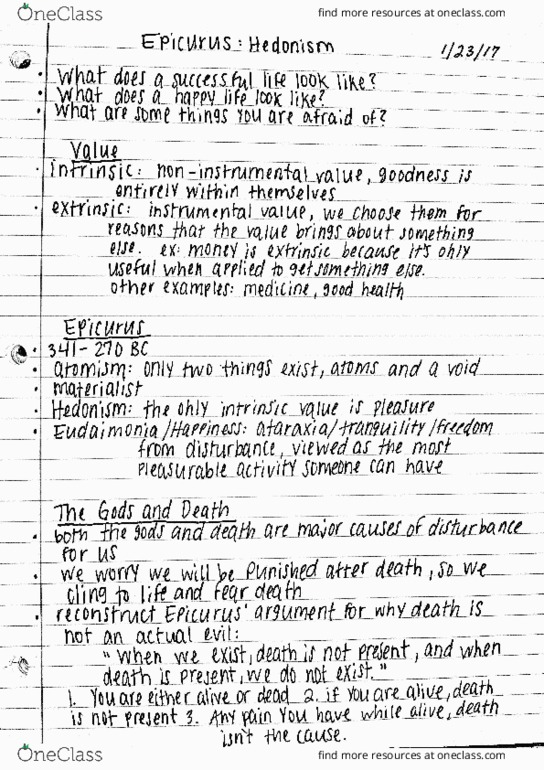 OneClass
find more resources at oneclass.com
EPICURUS: Hedonism
1/23/17
• What does a successful life look like?
• What does a happy life look like?
• What are some things you are afraid of?
Value
• intrinsic: non-instrumental value, goodness is
entirely within themselves
• extrinsic: instrumental value, we choose them for
reasons that the value brings about something
else. ex: money is extrinsic because it's only
useful when applied to get something else.
other examples: medicine, good health
Epicurus
• 341-270 BC
• atomism: only two things exist, atoms and a void
• materialist
• Hedonism: the only intrinsic value is pleasure
• Eudaimonia/Happiness: ataraxia/tranquility/freedom
from disturbance, viewed as the most
pleasurable activity someone can have
The Gods and Death
• both the gods and death are major causes of disturbance
for us
• we worry we will be punished after death, so we
cling to life and fear death
• reconstruct Epicurus' argument for why death is
not an actual evil:
"When we exist, death is not present, and when
death is present, we do not exist."
1. You are either alive or dead 2. if you are alive, death
is not present 3. Any pain you have while alive, death
isn't the cause.
OneClass
find more resources at oneclass.com